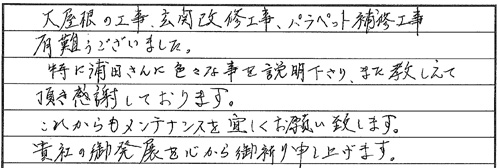 大屋根の工事、玄関改修工事、パラペット補修工事
有難うございました。
特に浦田さんに色々な事を説明下さり、また教しえて
頂き感謝しております。
これからもメンテナンスを宜しくお願い致します。
貴社の御発展を心から御祈り申し上げます。